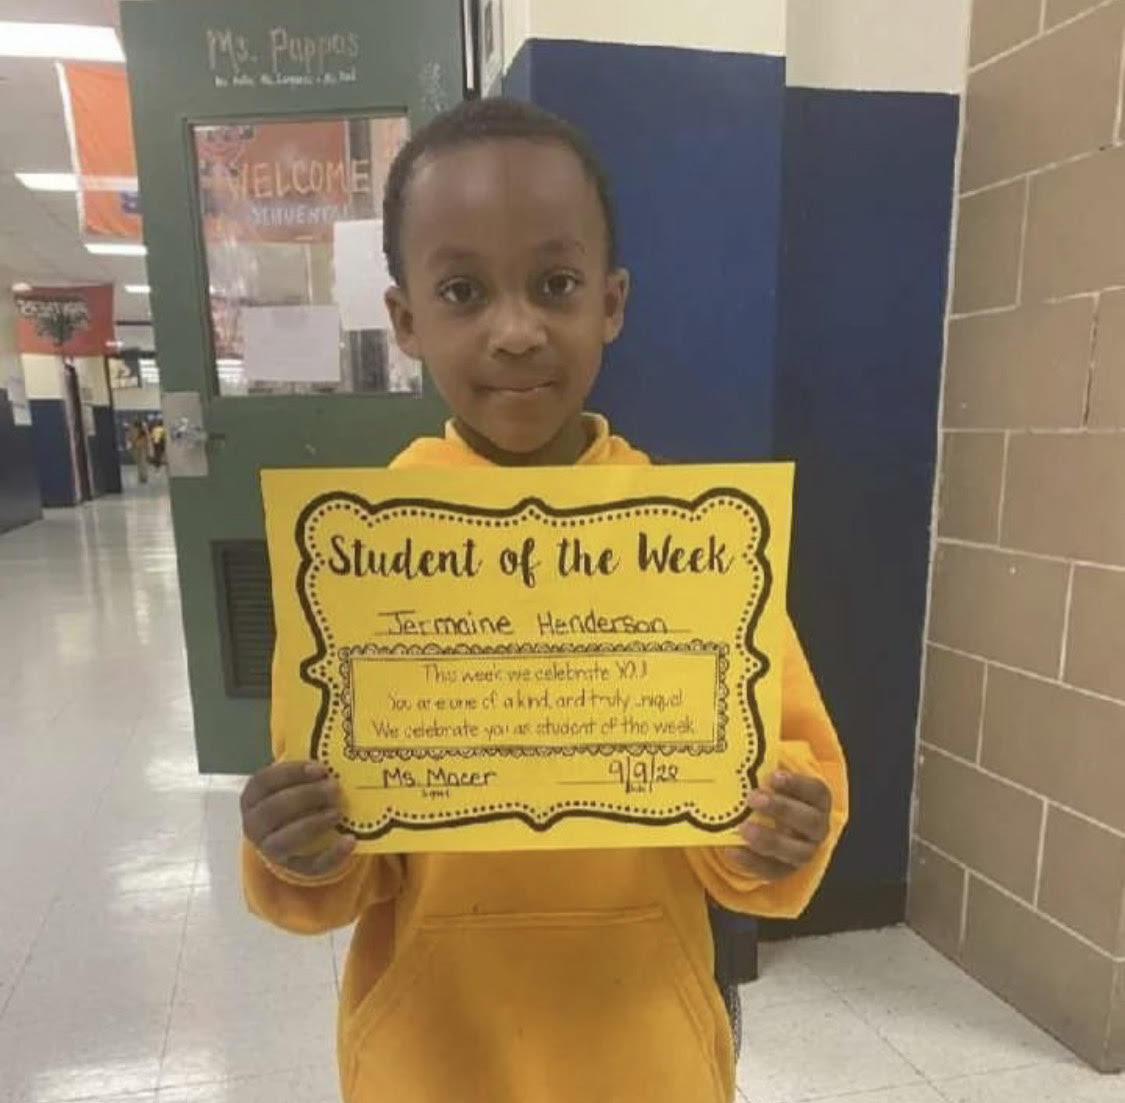 Ms. Pappas
WELCOME
Student of the Week
Jermaine Henderson
This week we celebrate YOU!
You are one of a kind, and truly unique!
We celebrate you as student of the week.
Ms. Macer
9/9/20